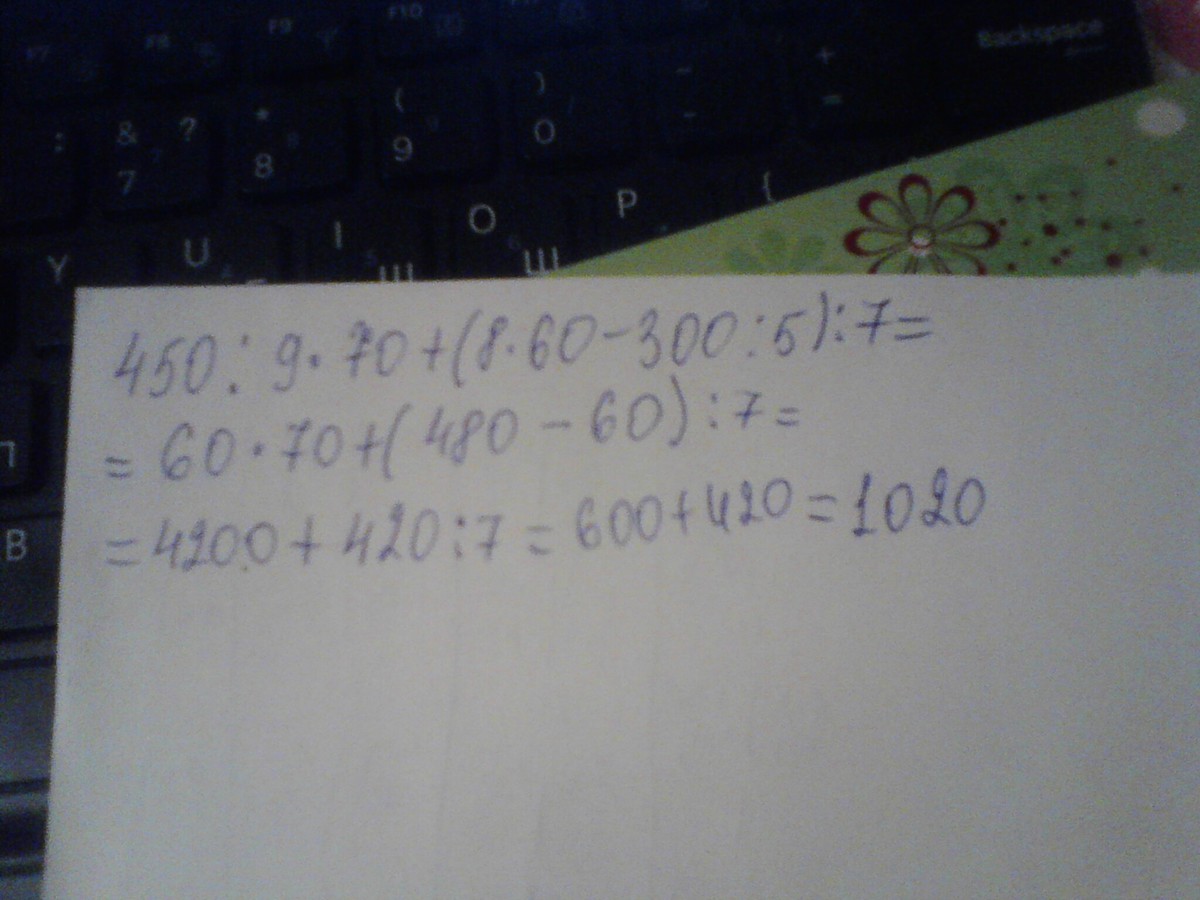 F7 F8 F9 F10
Backspace
: & 7 ? * 8 ( 9 ) 0 - - + =
Y U I Ш O Щ P {
П
В
450:9·70+(8·60-300:5):7=
=60·70+(480-60):7=
=4200+420:7=600+420=1020